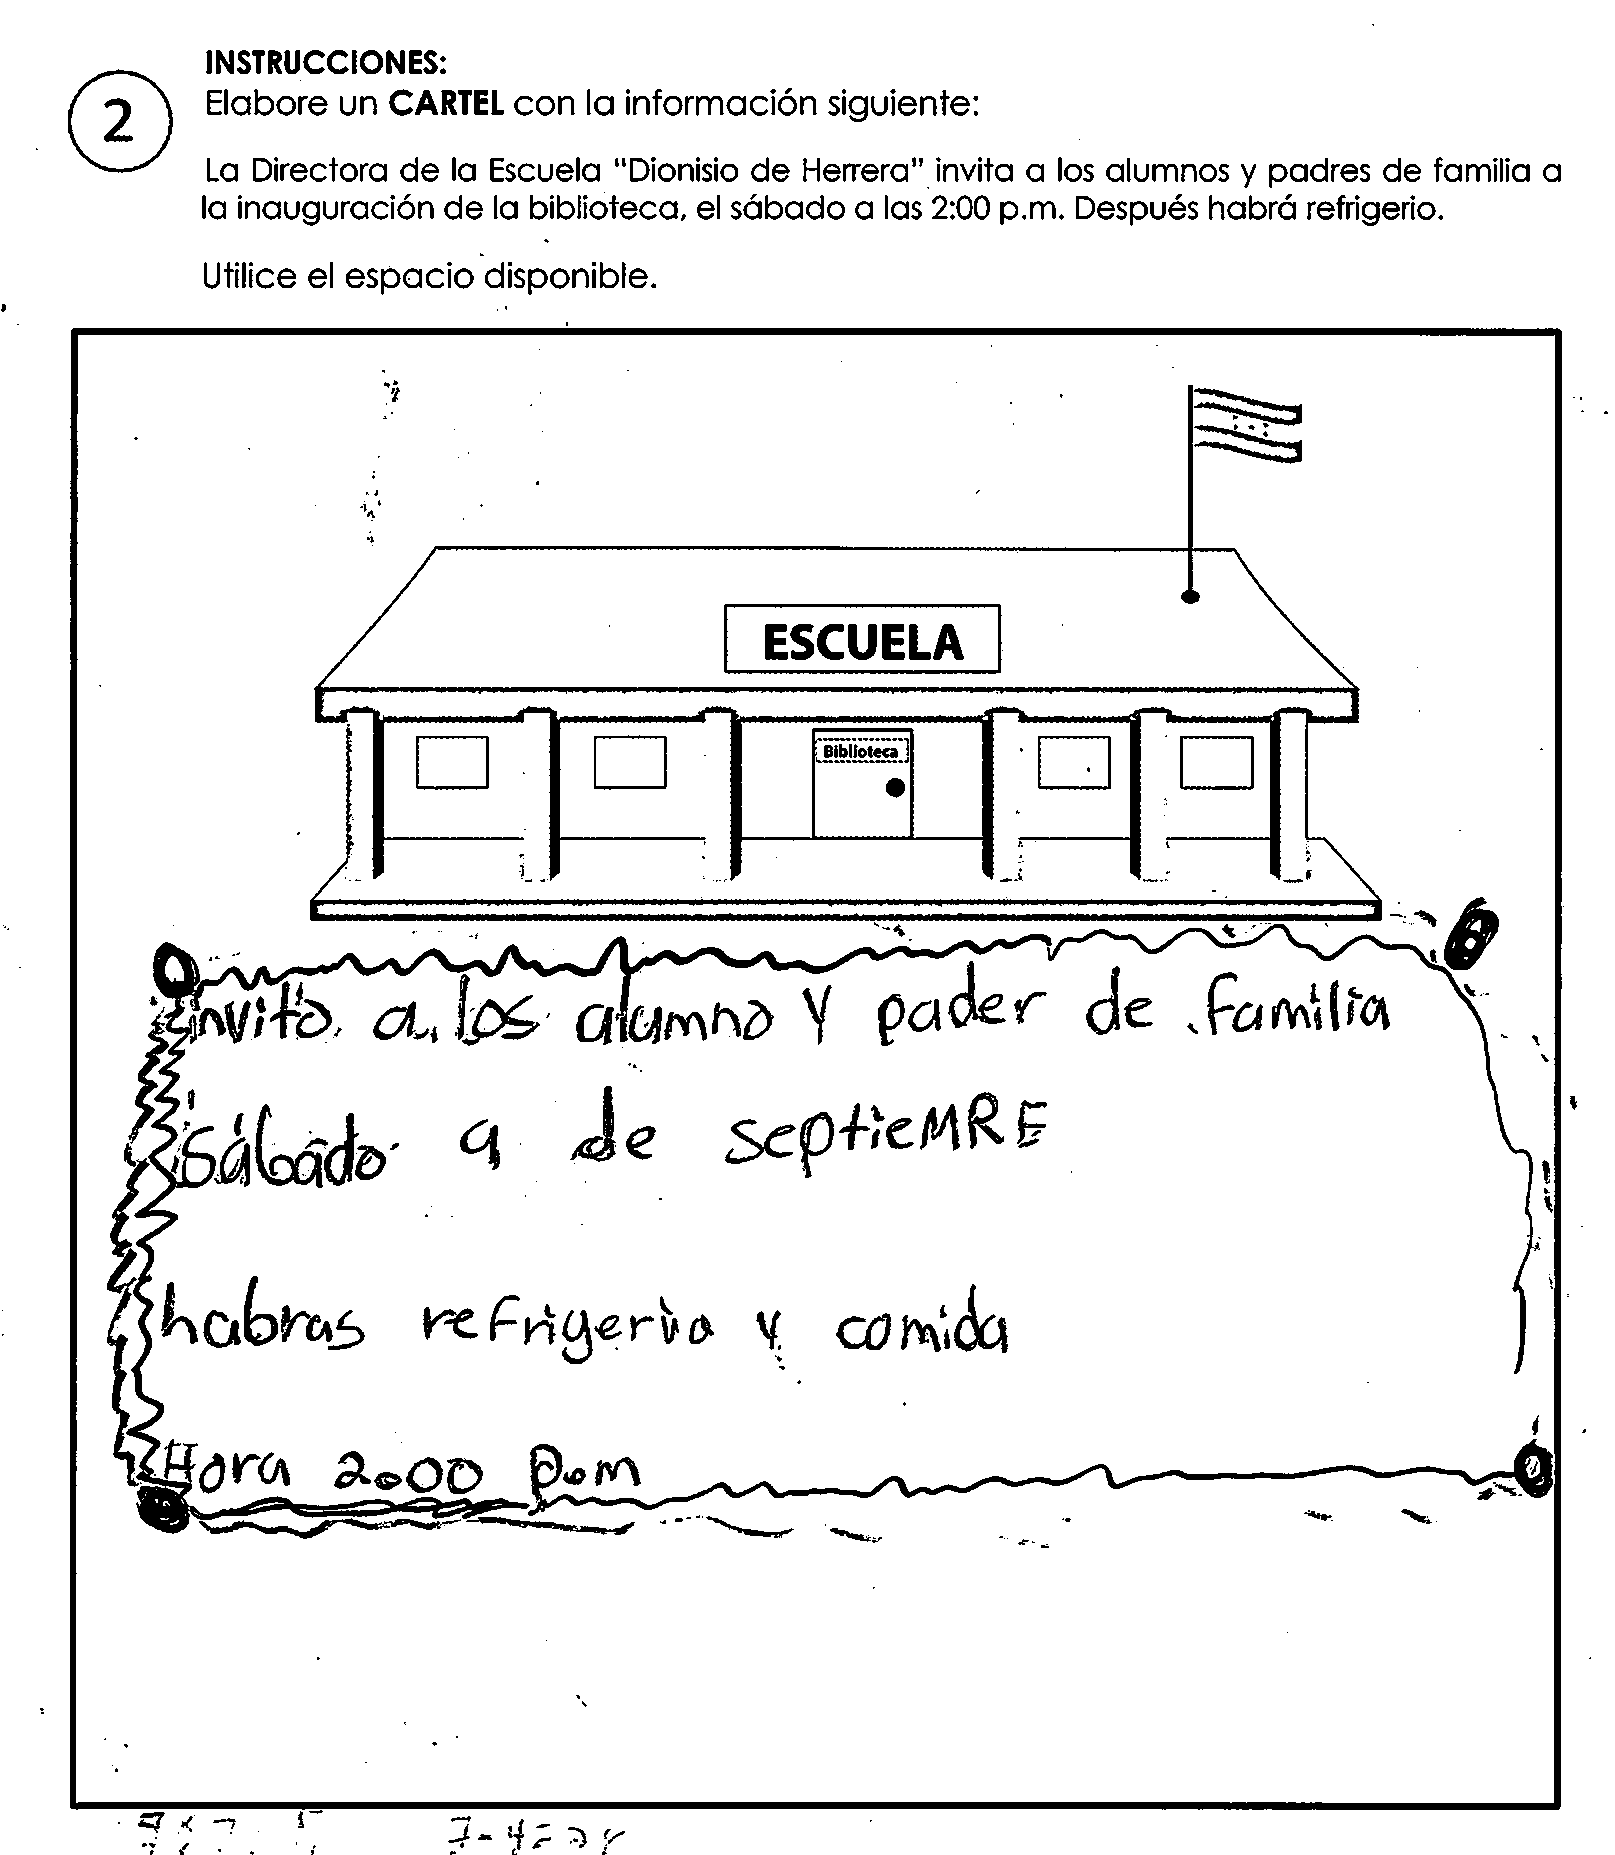 INSTRUCCIONES:
2
Elabore un CARTEL con la información siguiente:
La Directora de la Escuela "Dionisio de Herrera" invita a los alumnos y padres de familia a
la inauguración de la biblioteca, el sábado a las 2:00 p.m. Después habrá refrigerio.
Utilice el espacio disponible.
ESCUELA
Biblioteca
invito a los alumno y pader de familia
Sábado 9 de septieMRE
habras refrigerio y comida
Hora 2:00 p.m